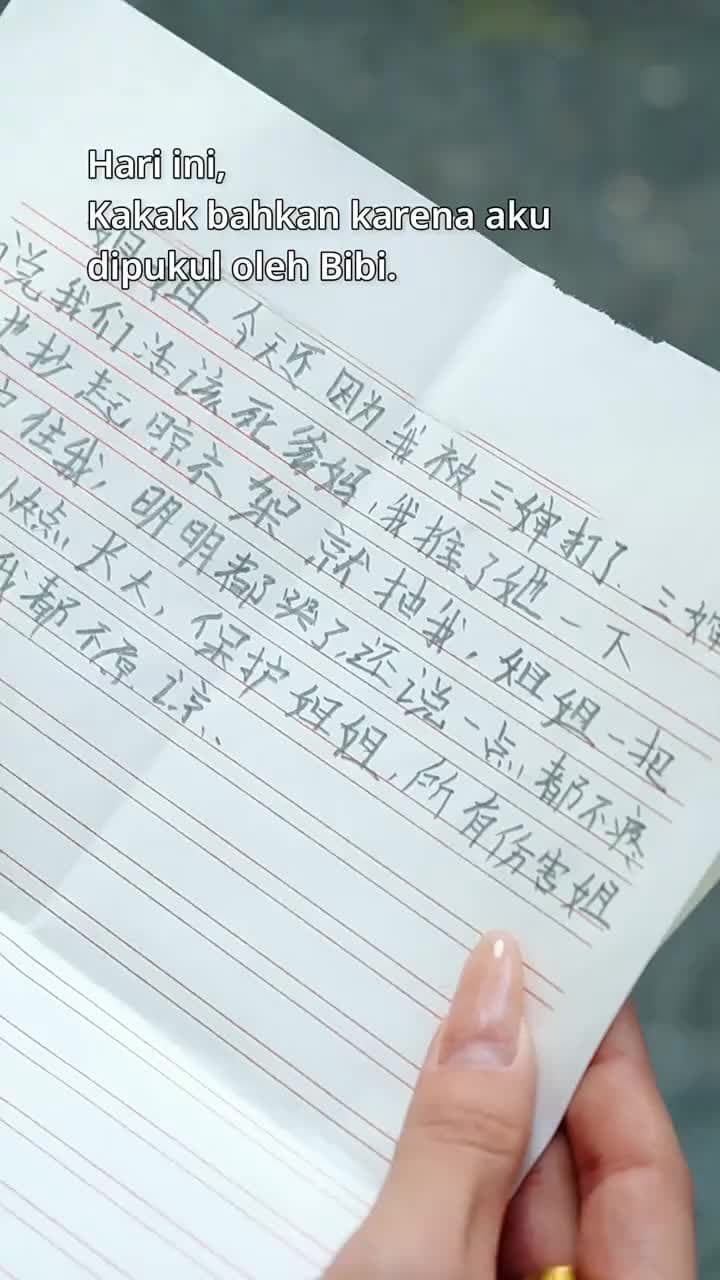 Hari ini,
Kakak bahkan karena aku
dipukul oleh Bibi.
姐姐今天还因为我被三婶打了.三婶
说我们活该死爹妈,我推了她一下
抄起晾衣架就抽我,姐姐一把
住我,明明都哭了,还说一点都不疼
快点长大,保护姐姐,所有伤害姐
我都不原谅..